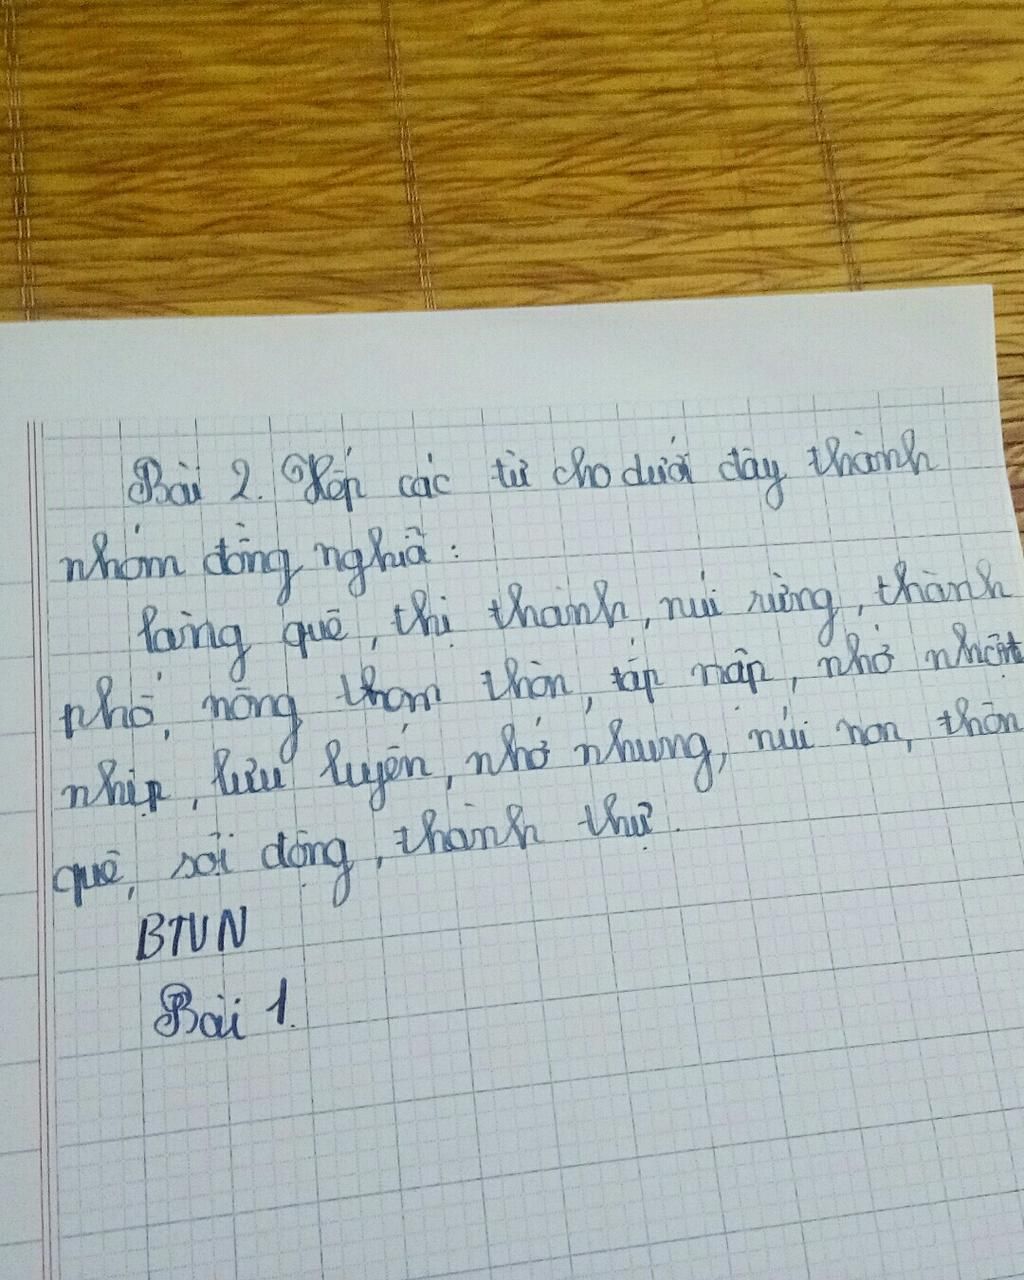 Bài 2. Xếp các từ cho dưới đây thành
nhóm đồng nghĩa:
làng quê, thị thành, núi rừng, thành
phố, nông thom thôn, tấp nập, nhớ nhớt
nhịp, lưu luyến, nhớ nhung, núi non, thôn
quê, sôi động, thành thự.
BTVN
Bài 1.